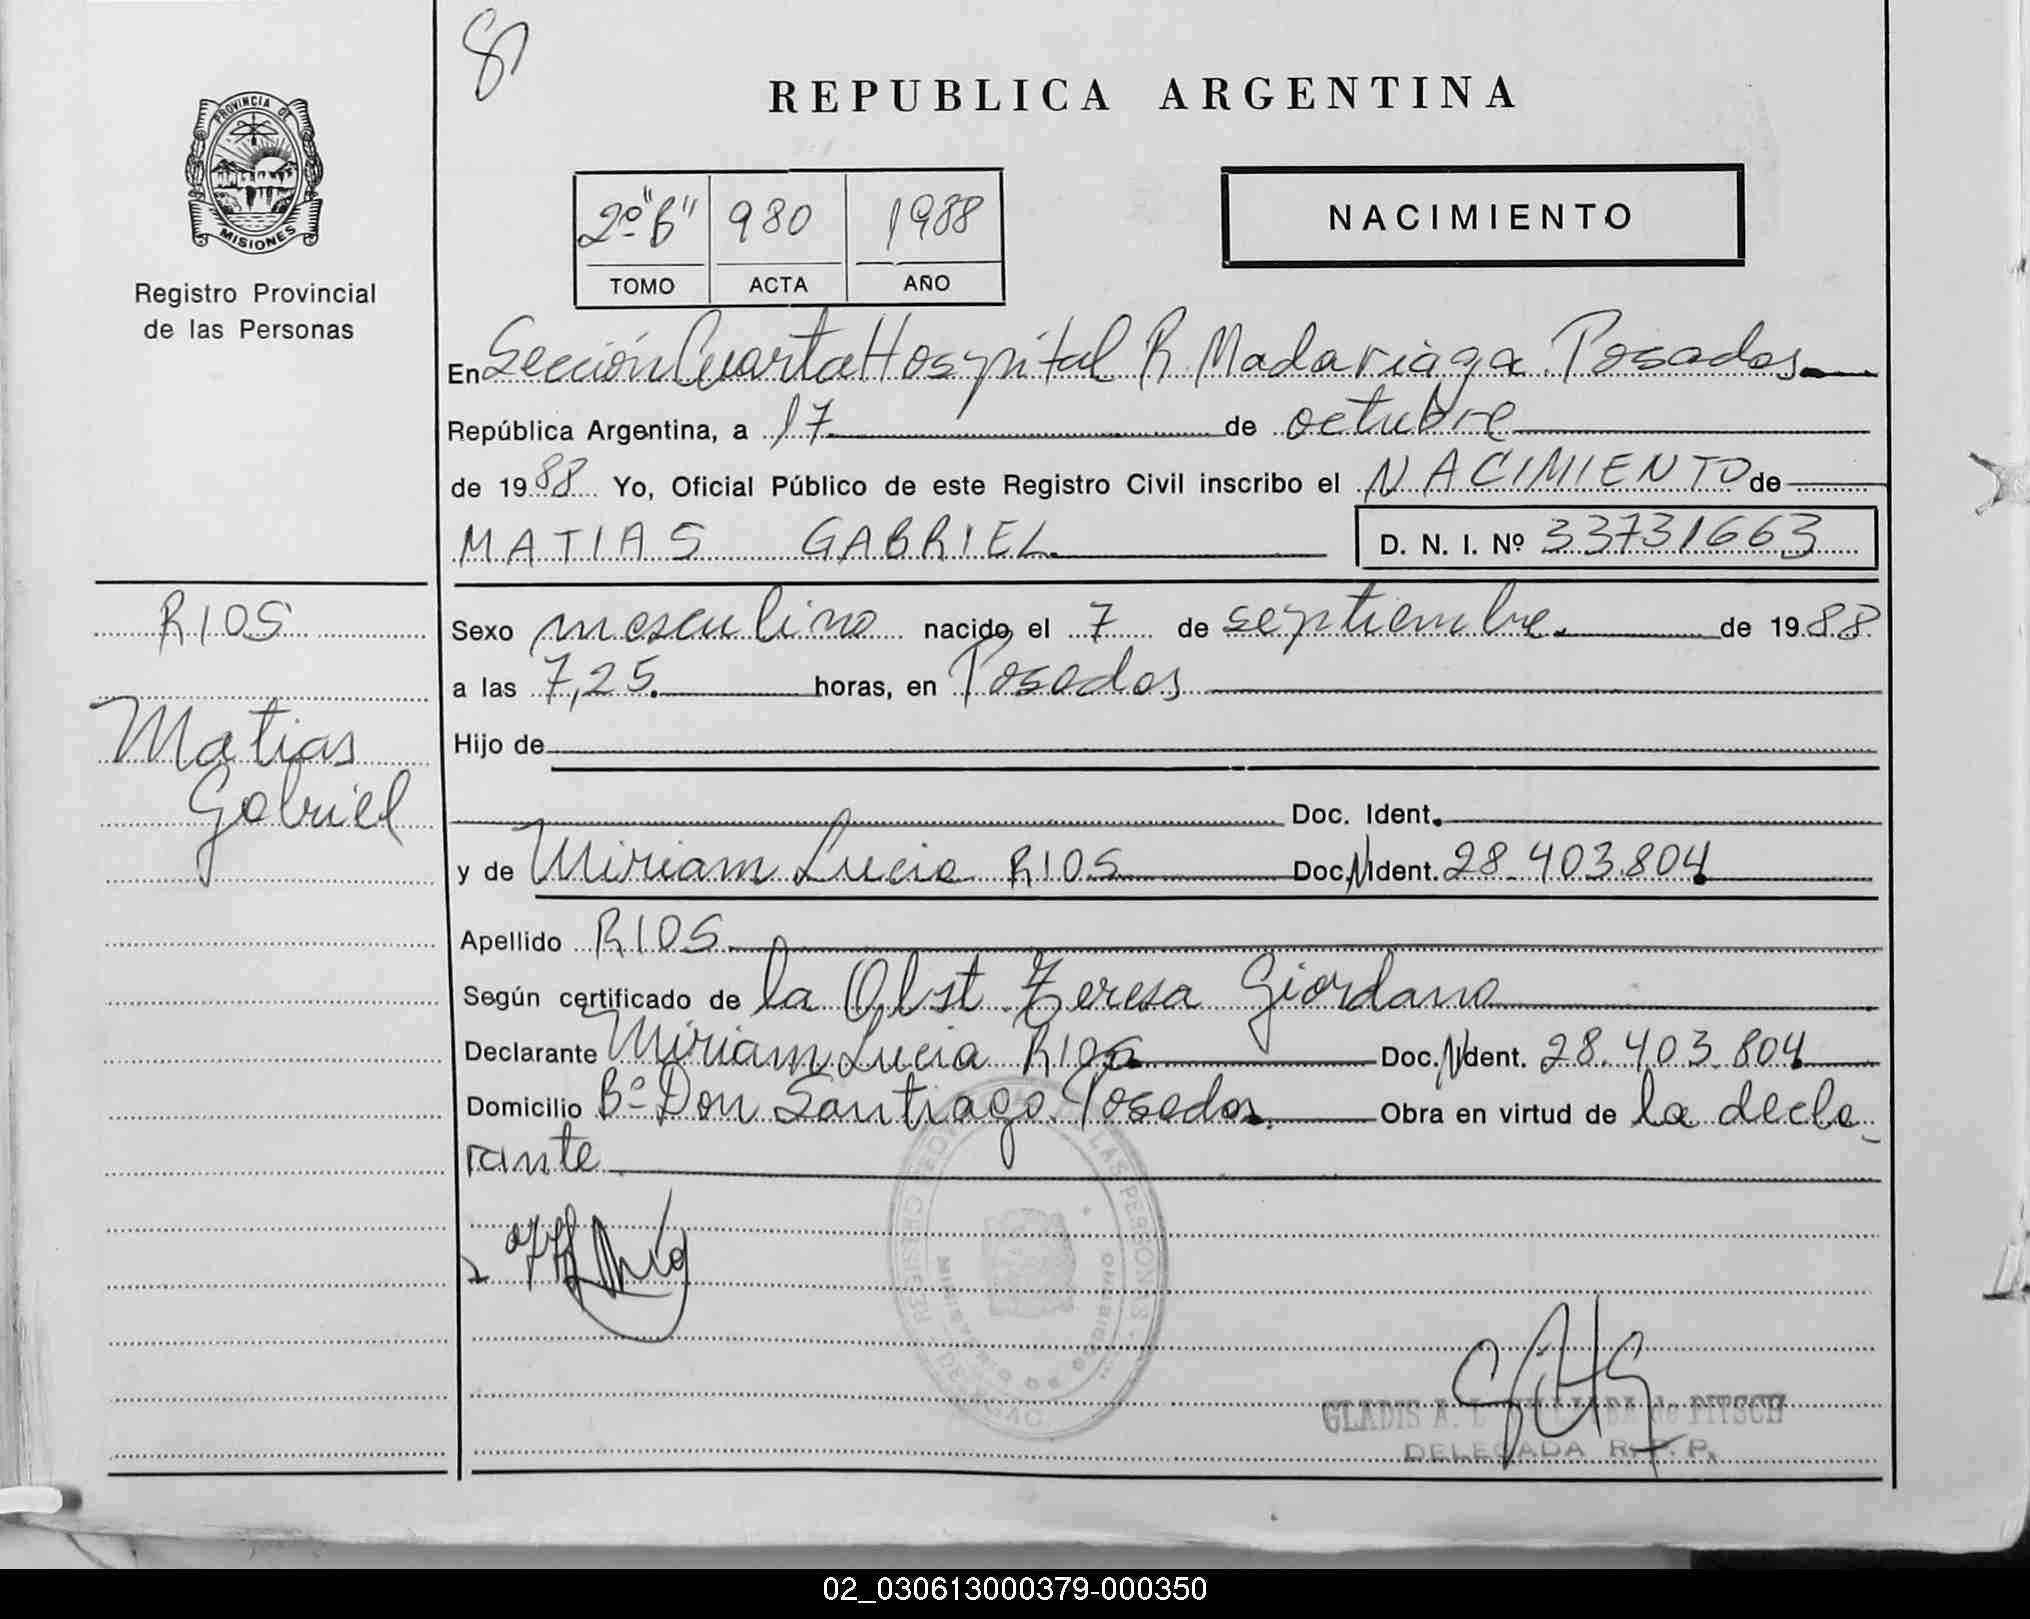 8
REPUBLICA ARGENTINA
PROVINCIA DE
MISIONES
Registro Provincial
de las Personas
2º "B" 980 1988
TOMO ACTA AÑO
NACIMIENTO
En Sección Cuarta Hospital R. Madariaga. Posadas
República Argentina, a 17 de octubre
de 1988 Yo, Oficial Público de este Registro Civil inscribo el NACIMIENTO de
MATIAS GABRIEL D. N. I. Nº 33731663
RIOS
Matias
Gabriel
Sexo masculino nacido el 7 de septiembre de 1988
a las 7,25 horas, en Posadas
Hijo de
Doc. Ident.
y de Miriam Lucia RIOS Doc. N Ident. 28.403.804
Apellido RIOS
Según certificado de la Obst Teresa Giordano
Declarante Miriam Lucia RIOS Doc. N Ident. 28.403.804
Domicilio Bº Don Santiago. Posadas. Obra en virtud de la decla
rante
REGISTRO LAS PERSONAS
GLADIS A. de PITSCH
DELEGADA R. P. P.
02_030613000379-000350